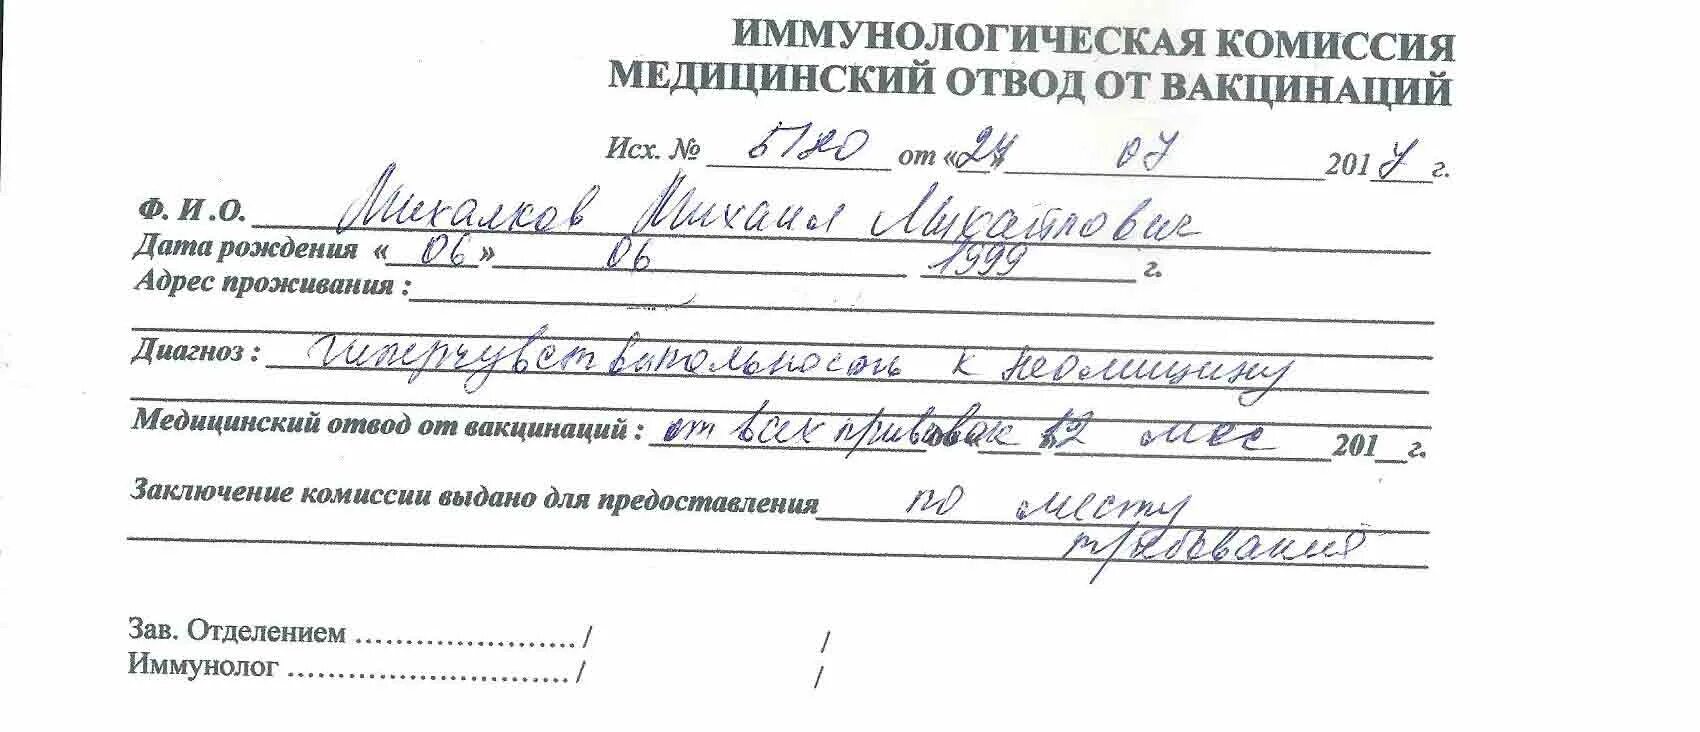 ИММУНОЛОГИЧЕСКАЯ КОМИССИЯ
МЕДИЦИНСКИЙ ОТВОД ОТ ВАКЦИНАЦИЙ
Исх. № 5180 от «24» 07 2017 г.
Ф. И .О. Михалков Михаил Михайлович
Дата рождения «06» 06 1999 г.
Адрес проживания :
Диагноз : Гиперчувствительность к неомицину
Медицинский отвод от вакцинаций : от всех прививок 12 мес 201 г.
Заключение комиссии выдано для предоставления по месту
требования
Зав. Отделением ..................... / /
Иммунолог ........................... / /